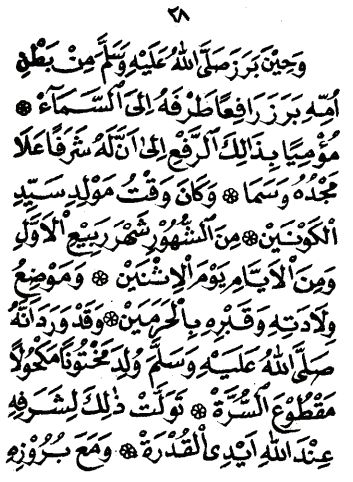 ٢٨
وَحِيْنَ بَرَزَ صَلَّى اللهُ عَلَيْهِ وَسَلَّمَ مِنْ بَطْنِ
اُمِّهِ بَرَزَ رَافِعًا طَرْفَهُ اِلَى السَّمَآءِ ۞
مُؤْمِيًا بِذَالِكَ الرَّفْعِ اِلَى اَنَّ لَهُ شَرَفًا عَلَا
مَجْدُهُ وَسَمَا ۞ وَكَانَ وَقْتُ مَوْلِدِ سَيِّدِ
الْكَوْنَيْنِ ۞ مِنَ الشُّهُوْرِ شَهْرَ رَبِيْعِ الْاَوَّلِ
وَمِنَ الْاَيَّامِ يَوْمَ الْاِثْنَيْنِ ۞ وَمَوْضِعُ
وِلَادَتِهِ وَقَبْرِهِ بِالْحَرَمَيْنِ ۞ وَقَدْ وَرَدَ اَنَّهُ
صَلَّى اللهُ عَلَيْهِ وَسَلَّمَ وُلِدَ مَخْتُوْنًا مَكْحُوْلًا
مَقْطُوْعَ السُّرَّةِ ۞ تَوَلَّتْ ذٰلِكَ لِشَرَفِهِ
عِنْدَ اللهِ اَيْدِى الْقُدْرَةِ ۞ وَمَعَ بُرُوْزِهِ